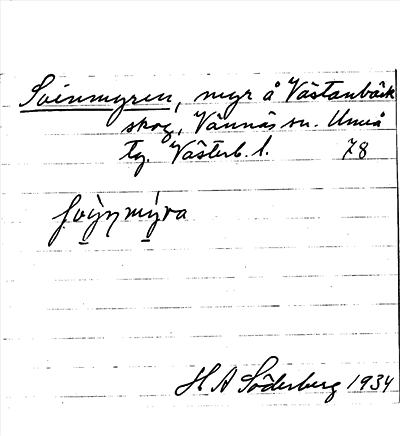 Svinmyren, myr å Västanbäck
skog, Vännäs sn. Umeå
tg. Västerb. l. 78
svìnmýra
H A Söderberg 1934